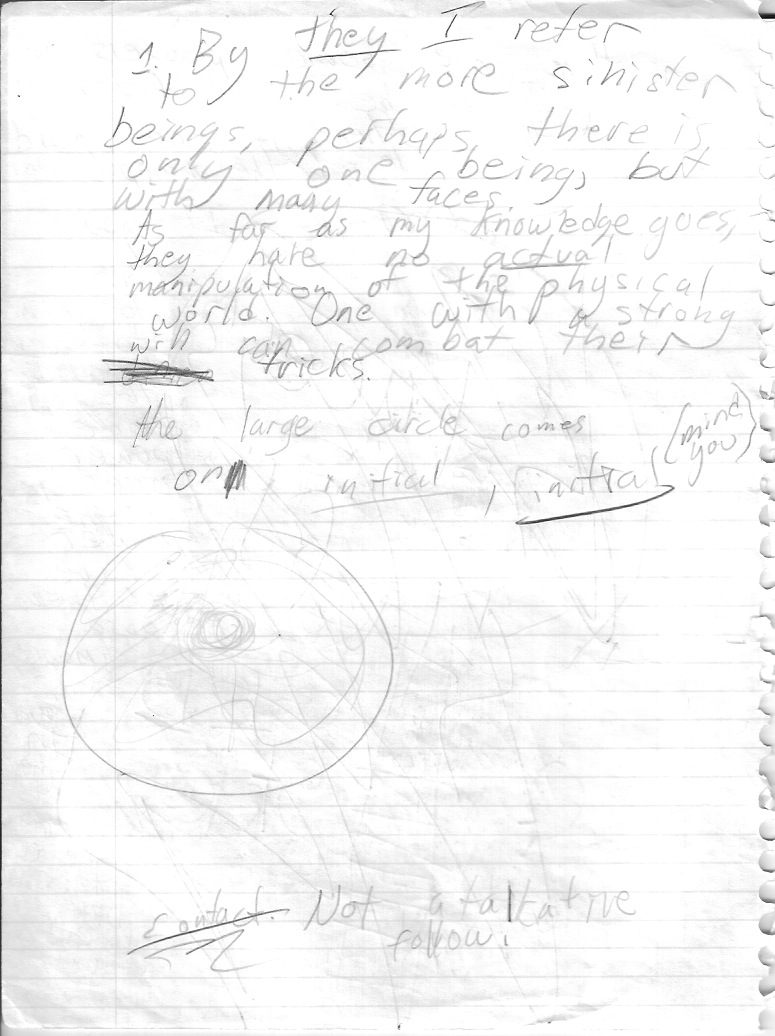 1. By they I refer
to the more sinister
beings, perhaps there is
only one being, but
with many faces.
As far as my knowledge goes,
they have no actual
manipulation of the physical
world. One with a strong
will can combat their
tricks.
the large circle comes
on initial, initial (mind you)
contact. Not a talkative
fellow.